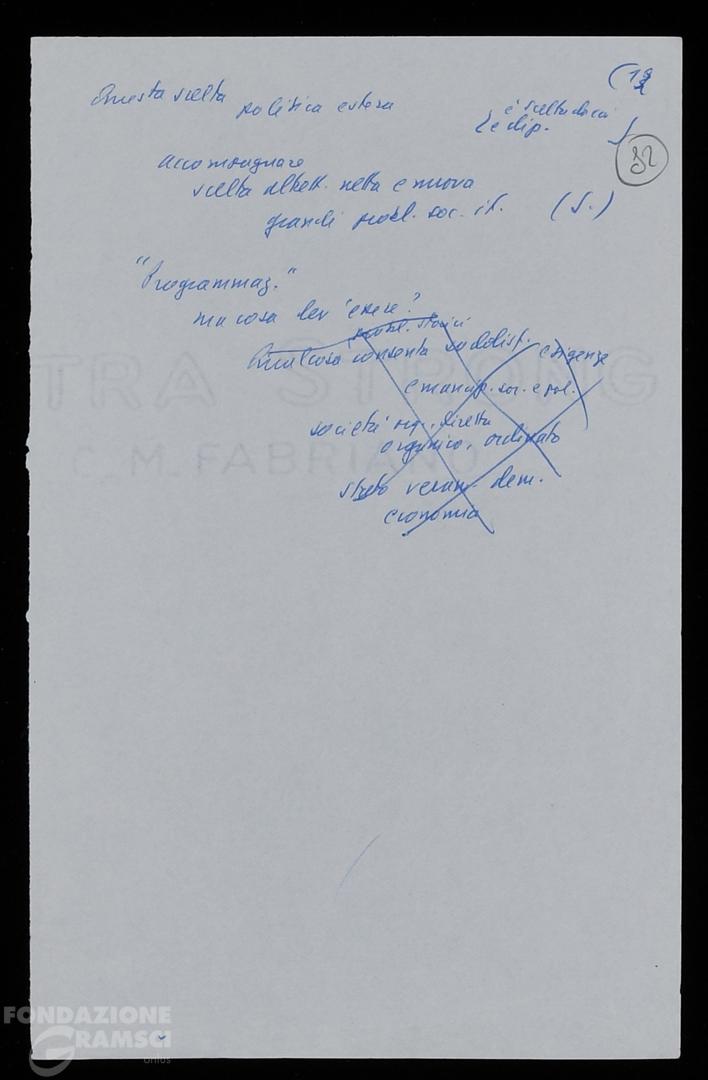 (19
Questa scelta politica estera
è scelta da cui
e dip.
32
accompagnare
scelta netta e nuova
grandi probl. soc. it. (S.)
"Programmaz."
ma cosa dev'essere?
probl. storici
Qualcosa consenta soddisf. esigenze
emancip. soc. e pol.
società diretta
organico, ordinato
veram. dem.
economia
TRA STRONG
C. M. FABRIANO
FONDAZIONE
GRAMSCI
onlus